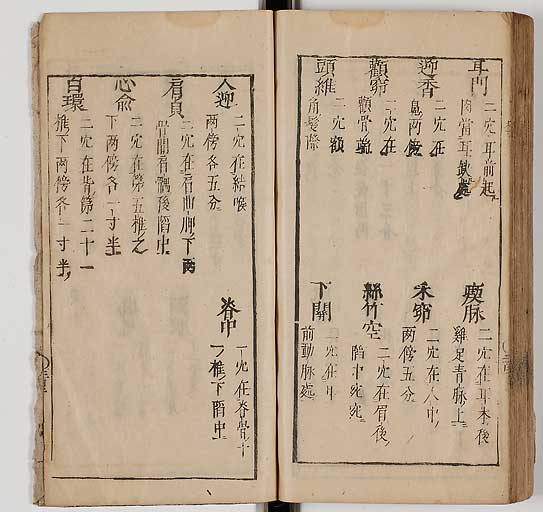 耳門
二穴耳前起
肉當耳缺處
瘈脉
二穴在耳本後
雞足青脉上
迎香
二穴在
鼻兩傍
禾窌
二穴在人中
兩傍五分
顴窌
二穴在
顴骨
絲竹空
二穴在眉後
陷中宛宛
頭維
二穴額
角髮際
下關
二穴在耳
前動脉處
人迎
二穴在結喉
兩傍各五分
脊中
一穴在脊骨十
一椎下陷中
肩貞
二穴在肩曲胛下兩
骨間肩髃後陷中
心俞
二穴在第五椎之
下兩傍各一寸半
百環
二穴在背第二十一
椎下兩傍各一寸半